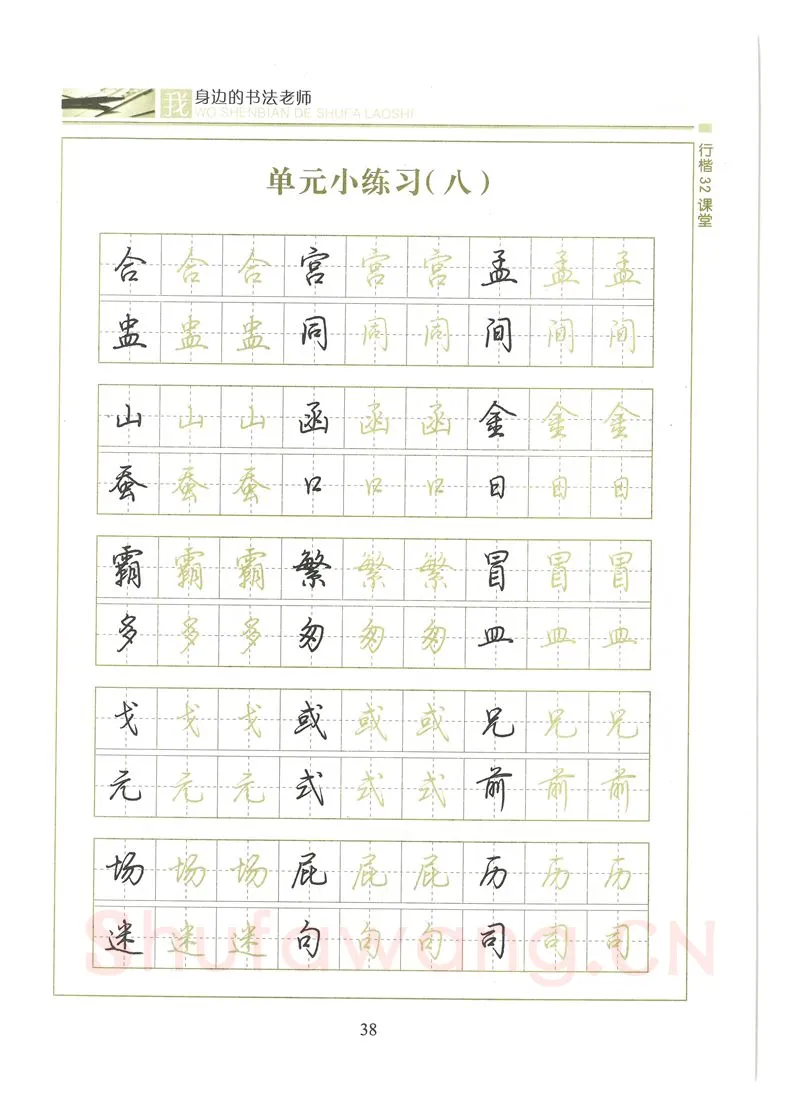 我 身边的书法老师
WO SHENBIAN DE SHUFA LAOSHI
行楷32课堂
单元小练习(八)
合 合 合 宫 宫 宫 孟 孟 孟
盅 盅 盅 同 周 周 间 间 间
山 山 山 函 函 函 金 金 金
蚕 蚕 蚕 口 口 口 日 日 日
霸 霸 霸 繁 繁 繁 冒 冒 冒
多 多 多 匆 匆 匆 皿 皿 皿
戈 戈 戈 或 或 或 兄 兄 兄
元 元 元 式 式 式 前 前 前
场 场 场 屁 屁 屁 历 历 历
迷 迷 迷 句 句 句 司 司 司
Shufawang.CN
38